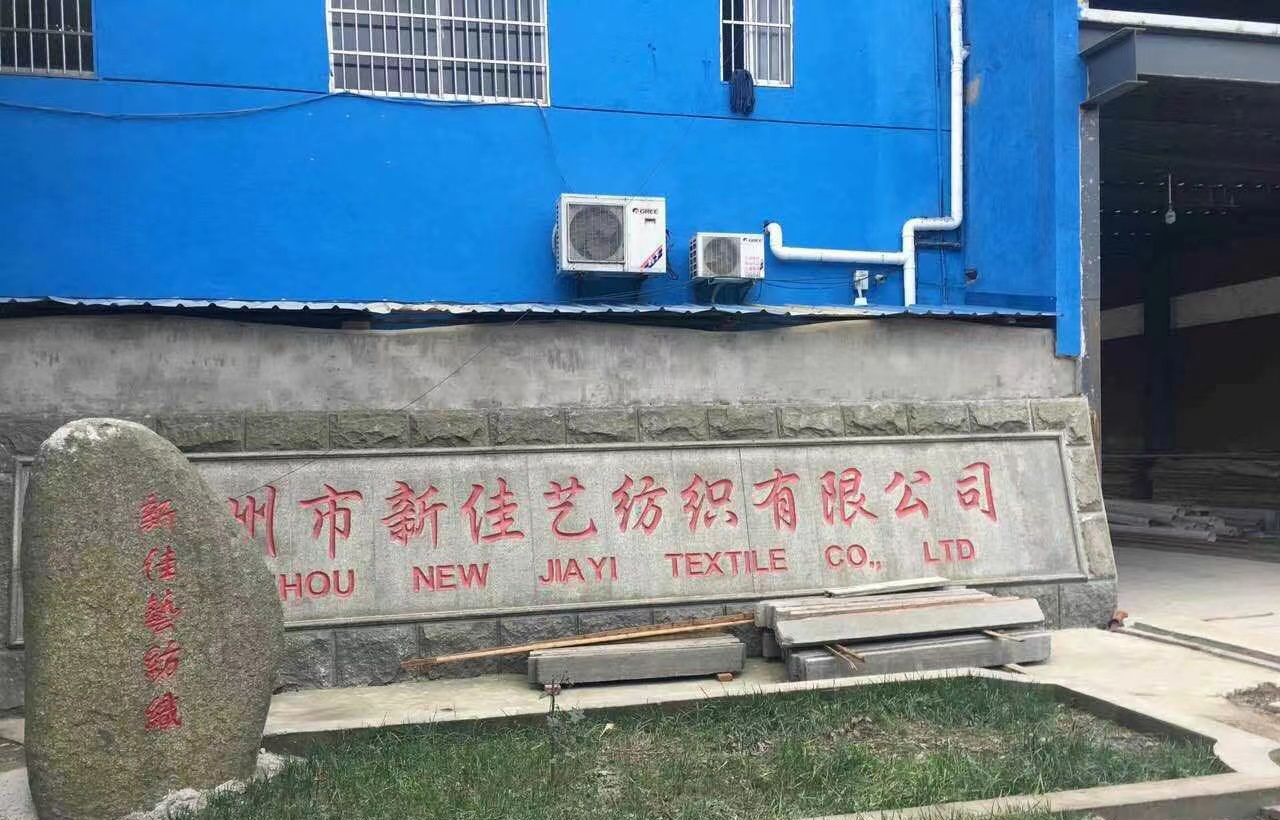 GREE
GREE
州市新佳艺纺织有限公司
HOU NEW JIAYI TEXTILE CO., LTD
新佳藝紡織